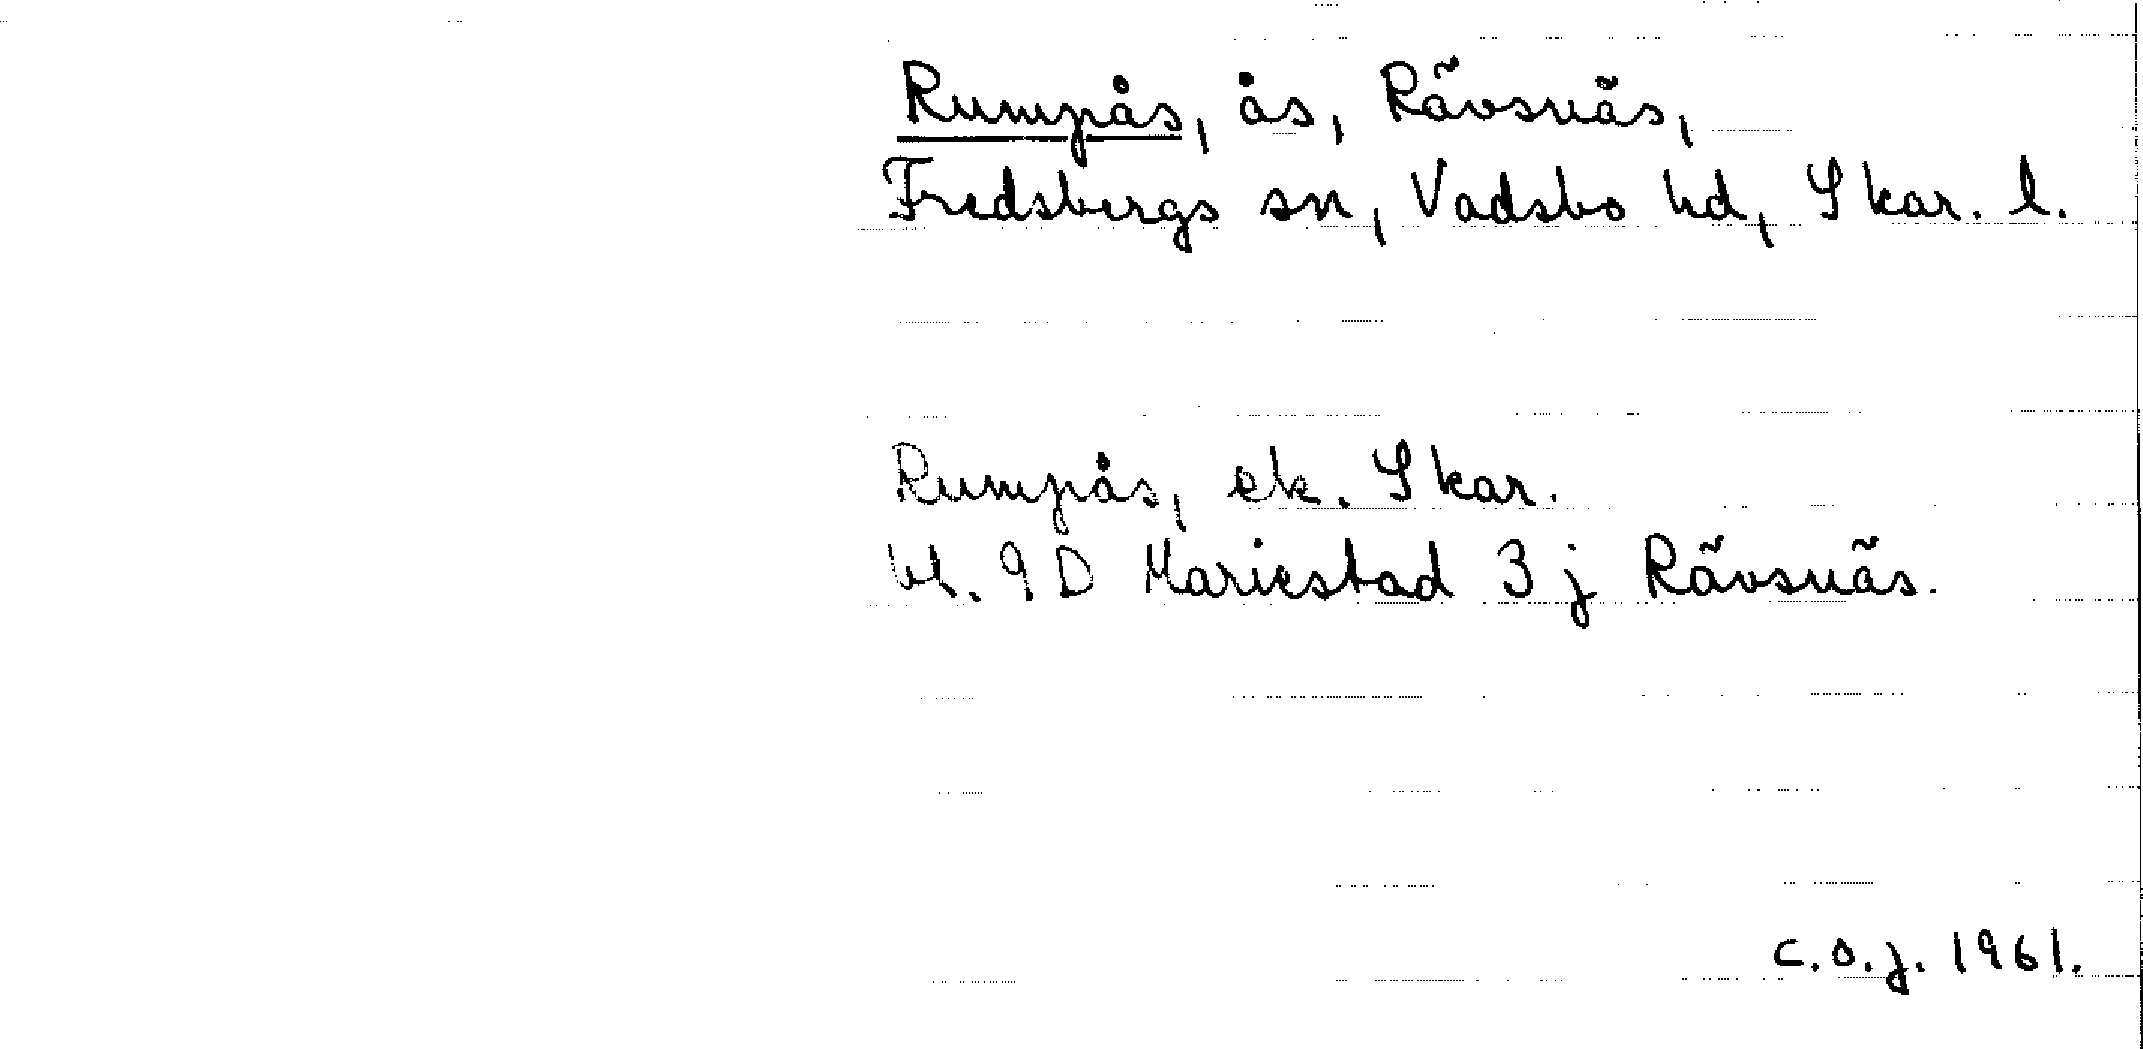 Rumpås, ås, Rävsnäs,
Fredsbergs sn, Vadsbo hd, Skar. l.
Rumpås, ek. Skar.
bl. 9D Mariestad 3 j Rävsnäs.
C.O.J. 1961.